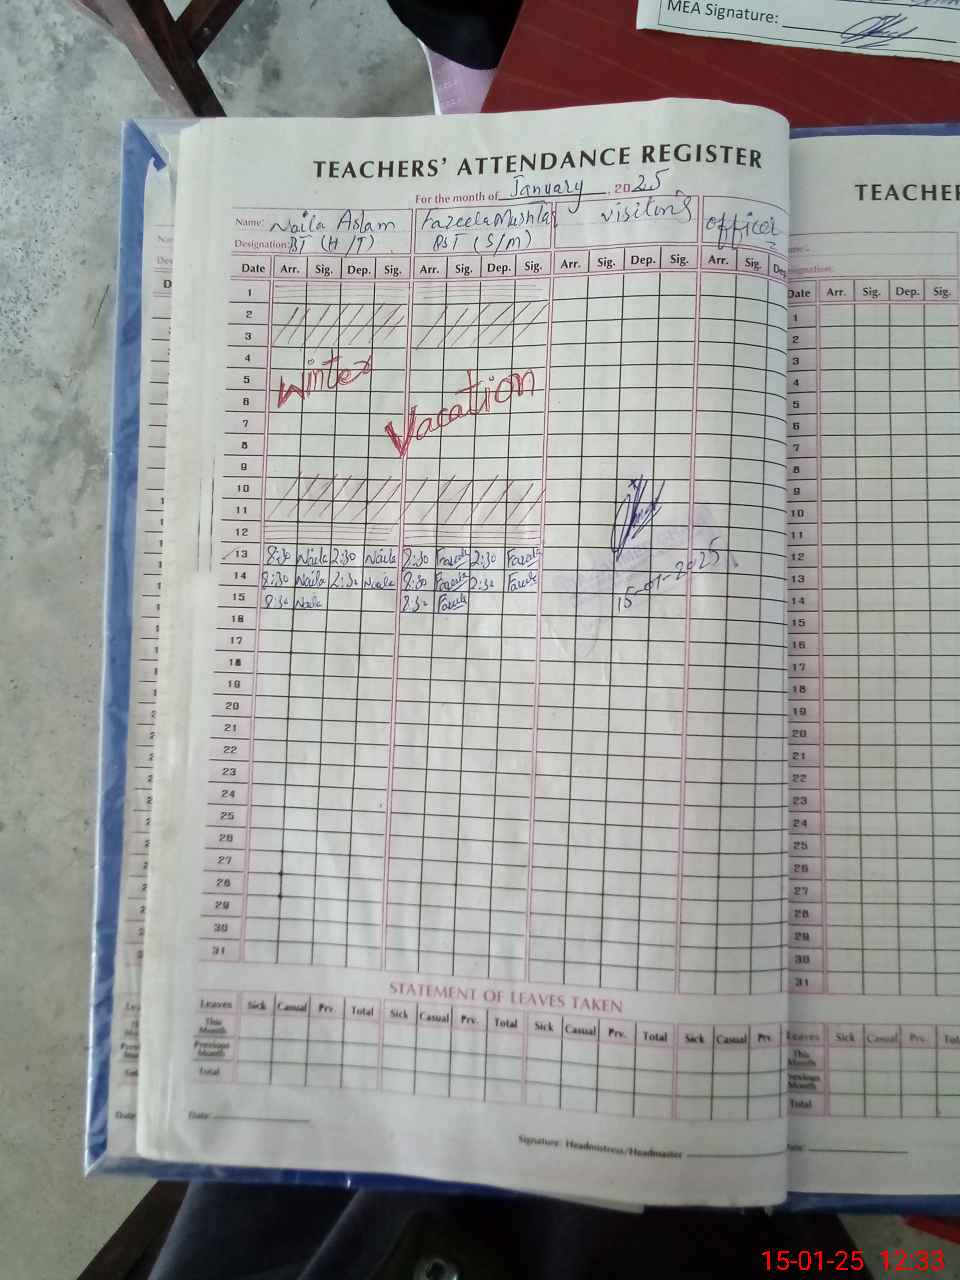 MEA Signature:
TEACHERS' ATTENDANCE REGISTER
For the month of January, 2025
Name: Naila Aslam Fazeela Mushtaq visiting officer
Designation: (H/T) PST (S/M)
Date Arr. Sig. Dep. Sig. Arr. Sig. Dep. Sig. Arr. Sig. Dep. Sig. Arr. Sig. Dep.
1
2
3
4
Winter
5
Vacation
6
7
8
9
10
11
12
13 8:30 Naila 2:30 Naila 8:30 Fazeela 2:30 Fazeela
14 8:30 Naila 2:30 Naila 8:30 Fazeela 2:30 Fazeela
15 8:30 Naila 8:30 Fazeela
15-01-2025
16
17
18
19
20
21
22
23
24
25
26
27
28
29
30
31
STATEMENT OF LEAVES TAKEN
Leaves Sick Casual Prv. Total Sick Casual Prv. Total Sick Casual Prv. Total Sick Casual Prv.
This Month
Previous Month
Total
Date:
Signature: Headmistress/Headmaster
TEACHER
Date Arr. Sig. Dep. Sig.
1
2
3
4
5
6
7
8
9
10
11
12
13
14
15
16
17
18
19
20
21
22
23
24
25
26
27
28
29
30
31
Leaves Sick Casual Prv.
This Month
Previous Month
Total
15-01-25 12:33